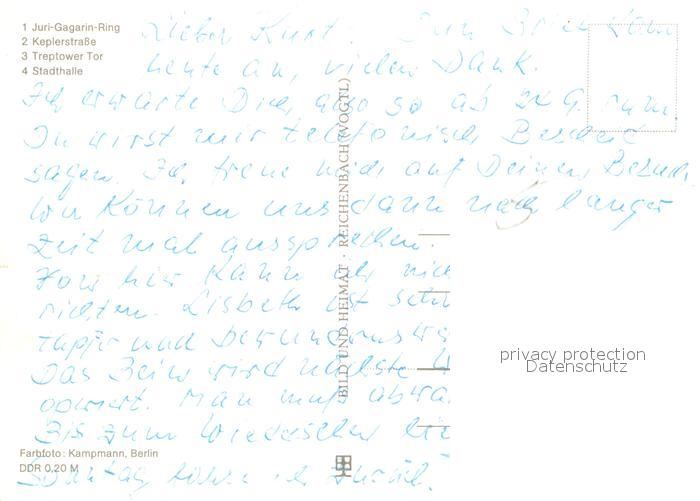 1 Juri-Gagarin-Ring
2 Keplerstraße
3 Treptower Tor
4 Stadthalle
Lieber Kurt! Dein Brief kam
heute an, vielen Dank.
Ich erwarte Dich, also so ab 24.9. rum
Du wirst mir telefonisch Bescheid
sagen. Ich freue mich auf Deinen Besuch.
Wir können uns dann nach langer
Zeit mal aussprechen.
Von hier kann ich nic
richten. Lisbeth ist seh
tapfer und bewundernswe
Das Bein wird nächste W
operiert. Man muß abwa
Bis zum Wiedersehen
Sonntag fahre ich zurück.
BILD UND HEIMAT · REICHENBACH (VOGTL)
privacy protection
Datenschutz
Farbfoto: Kampmann, Berlin
DDR 0,20 M